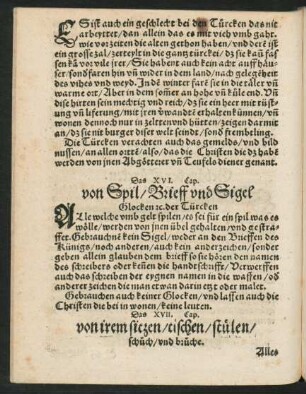 ES ist auch ein geschlecht bei den Türcken das nit
arbeyttet/dan allein das es mit vich vmb gaht.
wie vorzeiten die alten gethon haben/vnd derē ist
ein grosse zal/zerteylt in die gantz türckei/dz sie kaū fas
sen kā vor vile irer/Sie habent auch kein acht auff heü
ser/sond̓ faren hin vn̄ wider in dem land/nach gelegēheit
des vihes vnd weyd. In dē winter farē sie in die täler vn̄
warme ort/Aber in dem som̄er an hohe vn̄ küle end. Vn̄
dise hirten sein mechtig vnd reich/dz sie ein heer mit rüst
ung vn̄ liferung/mit iren v̓wandtē erhalten künnen/vn̄
wonen dennoch nur in zelten vnd hütten/zeigen darmit
an/dz sie nit burger diser welt seindt/sond̓ frembdling.
Die Türcken verachten auch das gemelds/vnd bild
nussen/an allen ortē/also/das die Christen die dz habē
werden von jnen Abgötterer vn̄ Teufels diener genant.
Das XVI. Cap.
von Spil/Brieff vnd Sigel
Glocken ꝛc. der Türcken
ALle welche vmb gelt spilen/es sei für ein spil was es
wölle/werden von jnen übel gehalten/vnd gestra/
ffet. Gebrauchnē kein Sigel/weder an den Brieffen des
Künigs/noch anderen/auch kein anderzeichen/sonder
geben allein glauben dem brieff so sie hören den namen
des schreibers oder keñen die handtschrifft/Verwerffen
auch das schreiber der eygnen namen in die waffen/od̓
anderet zeichen die man et wan darin etzt oder malet.
Gebrauchen auch keiner Glocken/vnd lassen auch die
Christen die bei in wonen/keine leuten.
Das XVII. Cap.
von irem sietzen/tischen/stülen/
schüch/vnd brüche.
Alles